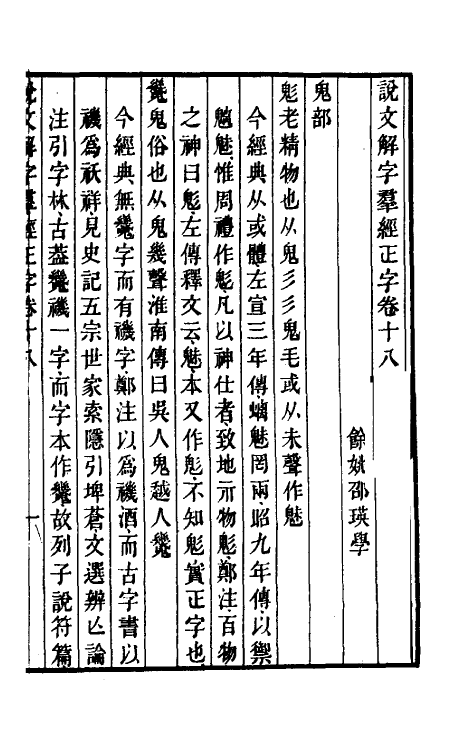 說文解字羣經正字卷十八
餘姚邵瑛學
鬼部
鬽老精物也从鬼彡彡鬼毛或从未聲作魅
今經典从或體左宣三年傳螭魅罔兩昭九年傳以禦
魑魅惟周禮作鬽凡以神仕者致地示物鬽鄭注百物
之神曰鬽左傳釋文云魅本又作鬽不知鬽實正字也
鬾鬼俗也从鬼幾聲淮南傳曰吳人鬼越人
今經典無字而有禨字鄭注以為禨酒而古字書以
禨為祅祥見史記五宗世家索隱引埤蒼文選辨亡論
注引字林古葢禨一字而字本作故列子說符篇
說文解字羣經正字卷十八
一